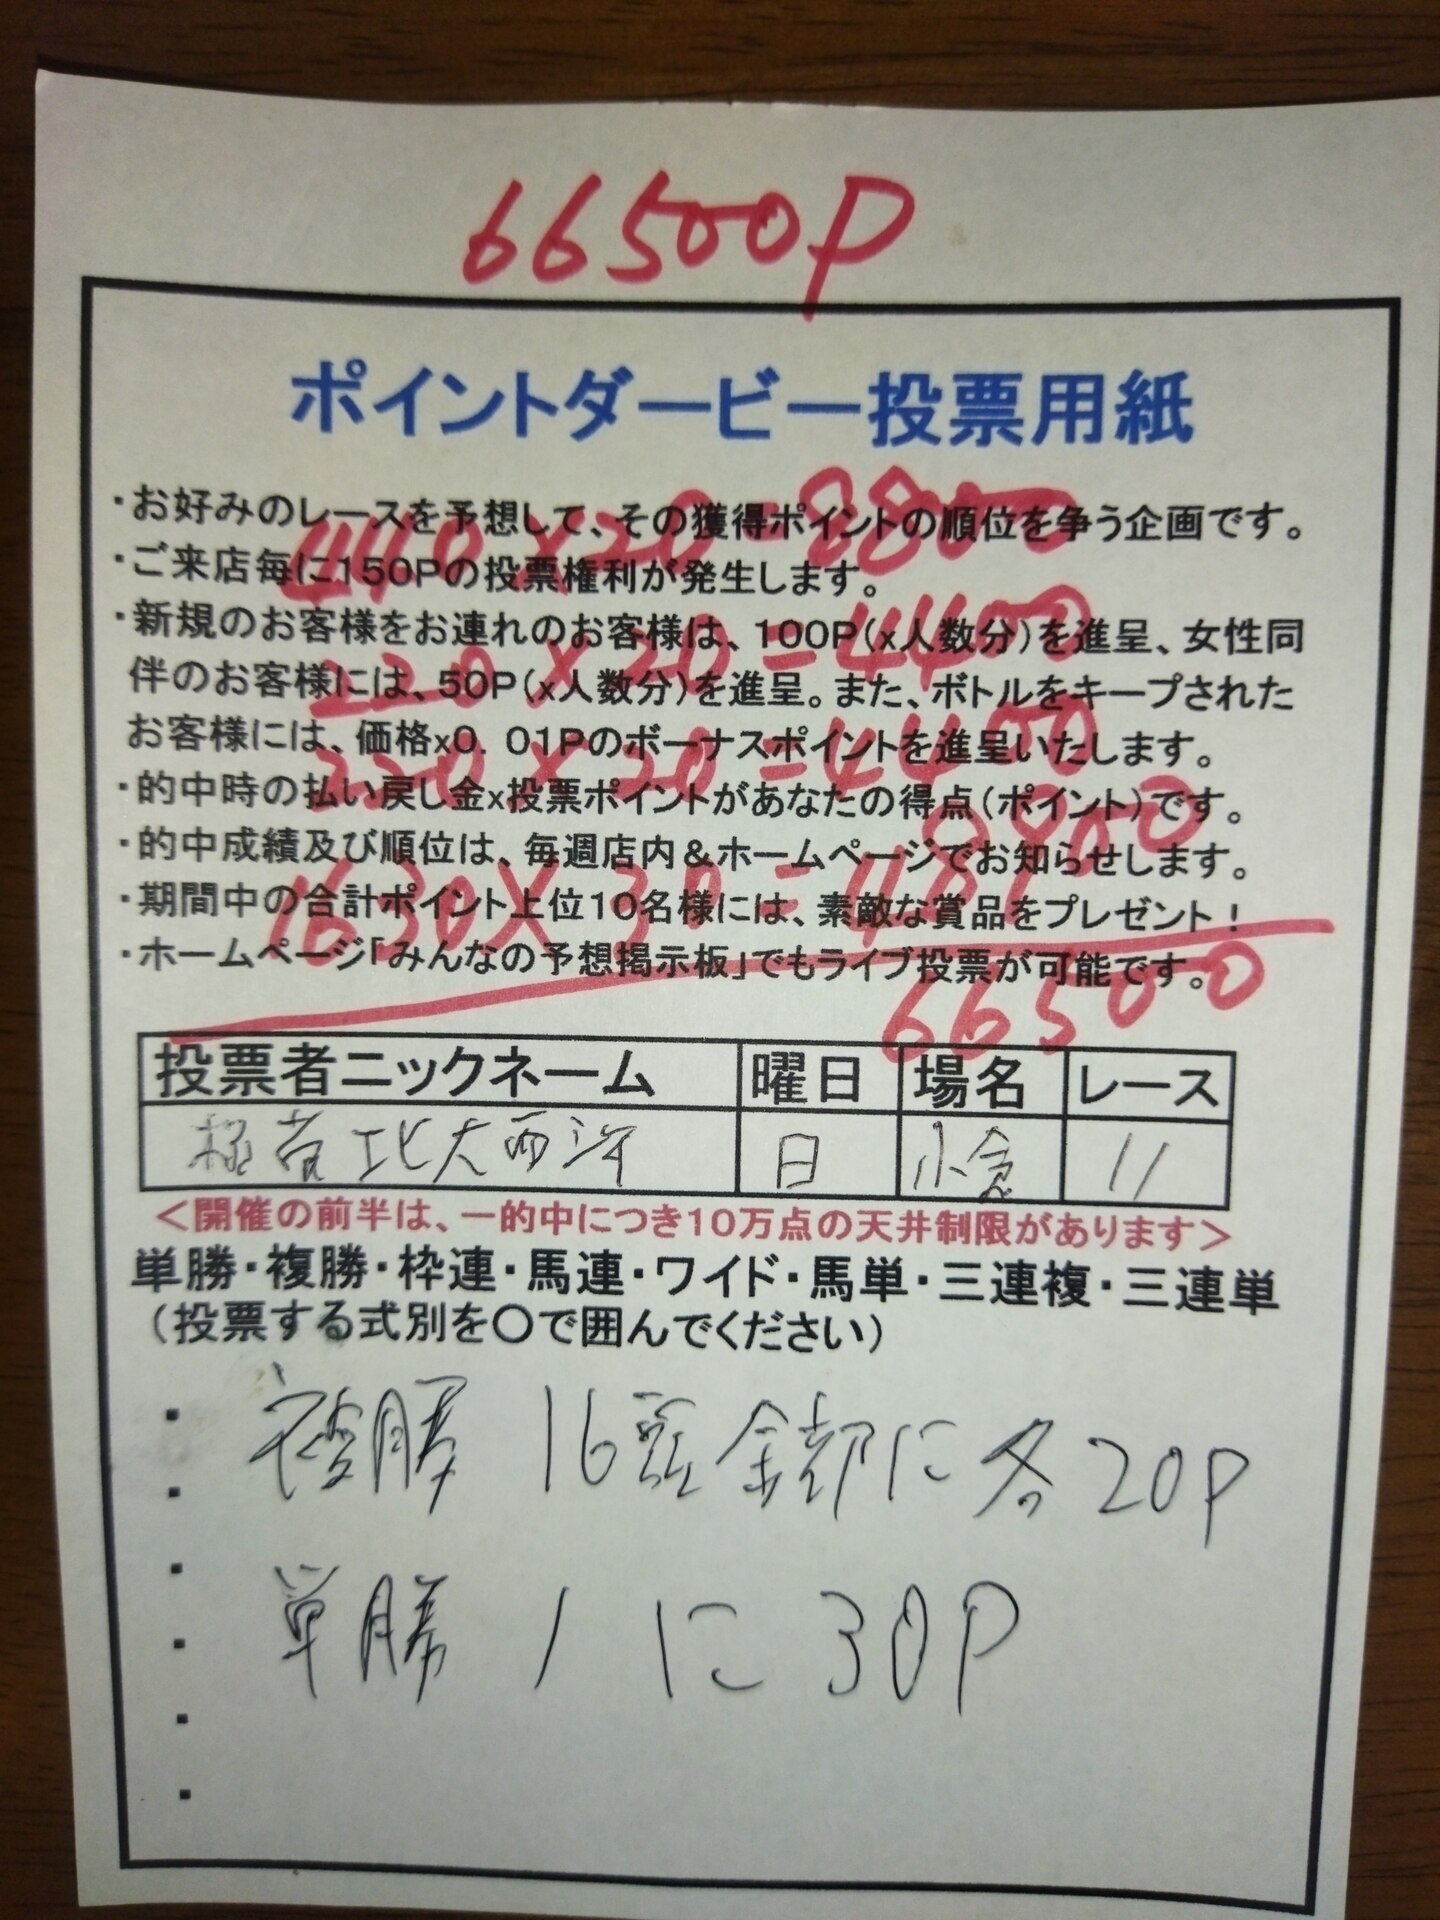 66500P
ポイントダービー投票用紙
・お好みのレースを予想して、その獲得ポイントの順位を争う企画です。
440×20=8800
・ご来店毎に150Pの投票権利が発生します。
・新規のお客様をお連れのお客様は、100P(x人数分)を進呈、女性同
220×20=4400
伴のお客様には、50P(x人数分)を進呈。また、ボトルをキープされた
お客様には、価格x0.01Pのボーナスポイントを進呈いたします。
220×20=4400
・的中時の払い戻し金x投票ポイントがあなたの得点(ポイント)です。
・的中成績及び順位は、毎週店内&ホームページでお知らせします。
・期間中の合計ポイント上位10名様には、素敵な賞品をプレゼント!
1630×30=48900
・ホームページ「みんなの予想掲示板」でもライブ投票が可能です。
66500
投票者ニックネーム 曜日 場名 レース
北大西洋 日 小倉 11
<開催の前半は、一的中につき10万点の天井制限があります>
単勝・複勝・枠連・馬連・ワイド・馬単・三連複・三連単
(投票する式別を〇で囲んでください)
複勝 16頭全部に各20P
単勝 1に30P